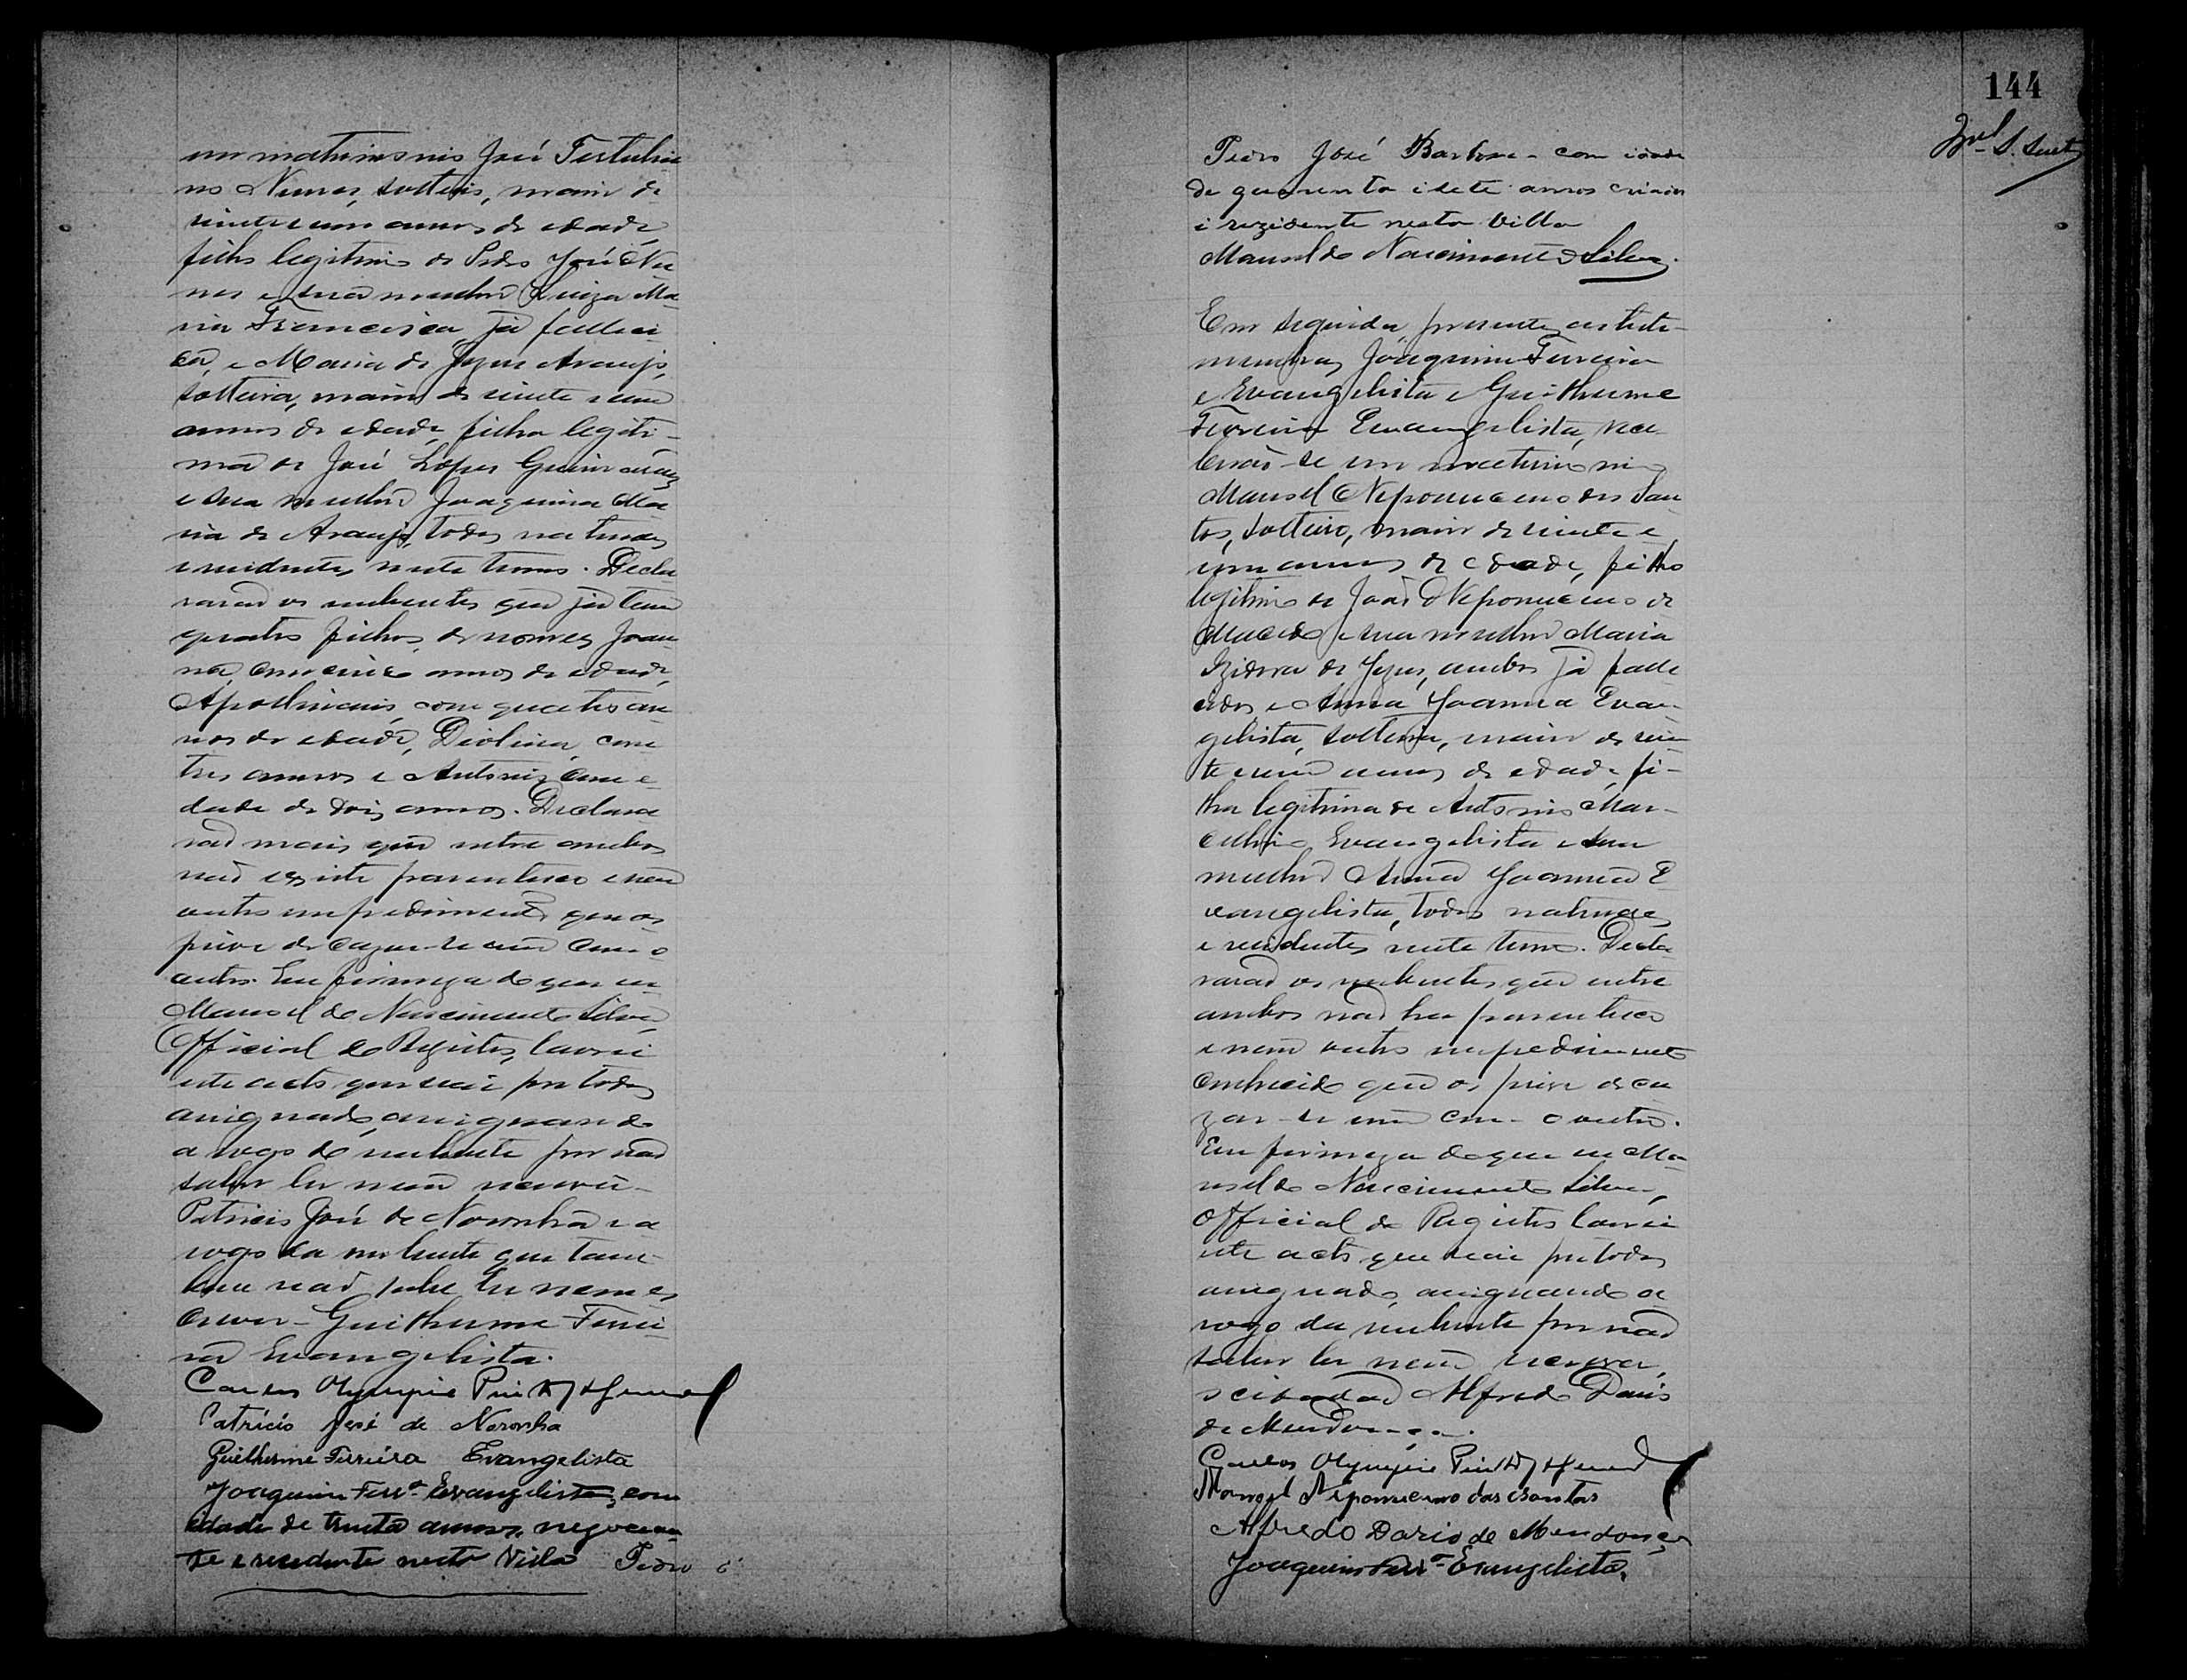 em matrimonio José Tertulia
no Nunes, solteiro, maior de
vinte e um annos de edade,
filho legitimo de Pedro José Nu
nes e sua mulher Luiza Ma
ria Francisca, já falleci
da, e Maria de Jezus Araujo,
solteira, maior de vinte e um
annos de edade, filha legiti-
ma de José Lopes Guimarães
e sua mulher Joaquina Ma
ria de Araujo, todos naturaes
e residentes neste termo. Decla
rarão os nubentes que já tem
quatro filhos, de nomes Joan
na, com cinco annos de edade,
Apollinario, com quatro an
nos de edade, Diolina, com
tres annos e Antonio, com e
dade de dois annos. Declara
rão mais que entre ambos
não existe parentesco e nem
outro impedimento que os
prive de cazar-se um com o
outro. Em firmeza do que eu
Manoel do Nascimento Silva,
Official do Registro, lavrei
este acto que vai por todos
assignado, assignando
a rogo do nubente por não
saber ler nem escrever
Patricio José de Noronha e a
rogo da nubente que tam
bem não sabe ler nem es
crever - Guilherme Ferrei-
ra Evangelista.
Carlos Olympio
Patricio José de Noronha
Guilherme Ferreira Evangelista
Joaquim Ferrª Evangelista, com
idade de trinta annos, negocian
te e residente nesta Villa Pedro
144
Pedro José Barbosa - com idade
de quarenta i sete annos
i rezidente nesta Villa
Manoel do Nascimento Silva.
Em seguida, presentes as teste-
munhas Joaquim Ferreira
Evangelista e Guilherme
Ferreira Evangelista, rece
berão-se em matrimonio
Manoel Nepomuceno dos San
tos, solteiro, maior de vinte e
um annos de edade, filho
legitimo de João Nepomuceno de
Macedo e sua mulher Maria
Izidora de Jezus, ambos já falle
cidos e Anna Joanna Evan
gelista, solteira, maior de vin
te e um annos de edade, fi-
lha legitima de Antonio Mar-
cellino Evangelista e sua
mulher Anna Joanna E
vangelista, todos naturaes
e residentes neste termo. Decla
rarão os nubentes que entre
ambos não ha parentesco
e nem outro impedimento
conhecido que os prive de ca
zar-se um com o outro.
Em firmeza do que eu Ma
noel do Nascimento Silva,
Official do Registro lavrei
este acto que vai por todos
assignado, assignando a
rogo da nubente por não
saber ler nem escrever,
o cidadão Alfredo Dario
de Mendonça.
Carlos Olympio
Manoel Nepomuceno dos Santos
Alfredo Dario de Mendonça
Joaquim Ferrª Evangelista.